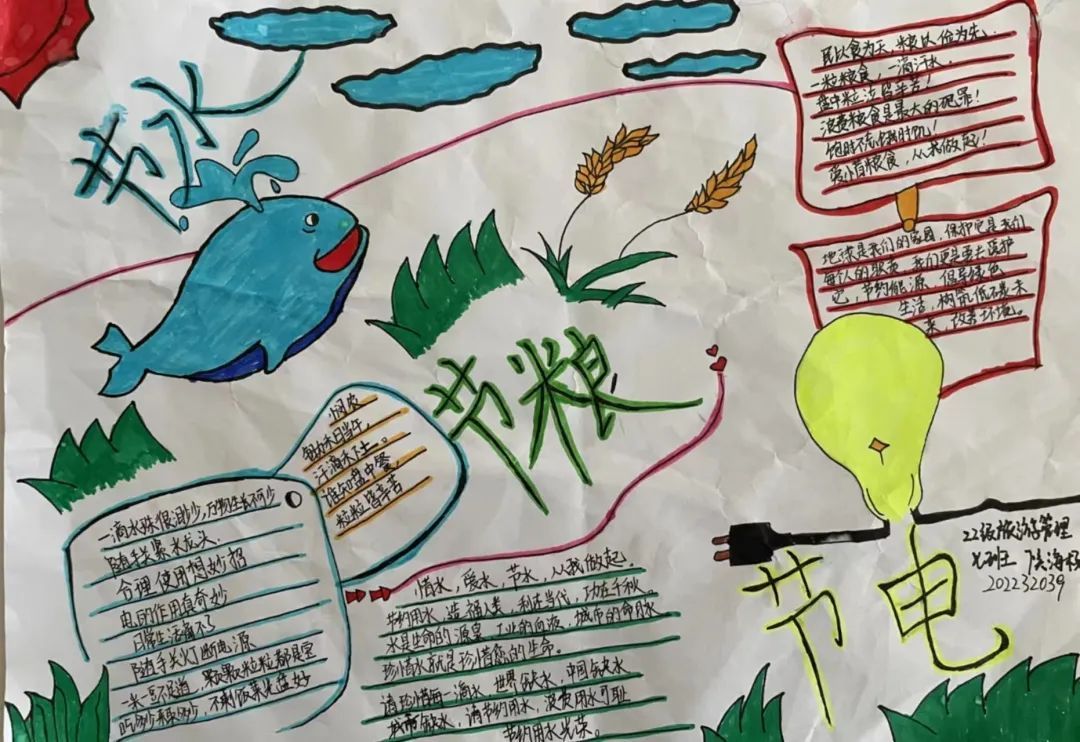 节水
民以食为天,粮以俭为先.
一粒粮食,一滴汗水.
盘中粒泣留辛苦!
浪费粮食是最大的犯罪!
饱时不忘饿时饥!
爱惜粮食,从我做起!
地球是我们的家园,保护它是我们
每个人的我们更是要去医护
它,节约能源、倡导绿色
生活,构筑低碳未
来,改善环境。
节粮
悯农
锄禾日当午,
汗滴禾下土。
谁知盘中餐,
粒粒皆辛苦
一滴水珠很渺少,万物生长不可少
随手关紧水龙头.
合理使用想妙招
电的作用真奇妙
日常生活离不了
随手关灯断电源
一米一粟不足道,颗颗粒粒都是宝
不剩饭菜光盘好
惜水,爱水,节水,从我做起.
节约用水,造福人类,利在当代,功在千秋。
水是生命的源泉、工业的血液、城市的命脉
珍惜水就是珍惜您的生命。
请珍惜每一滴水 世界缺水、中国缺水
城市缺水,请节约用水、浪费用水可耻
节约用水光荣。
节电
22级旅游管理
202232039